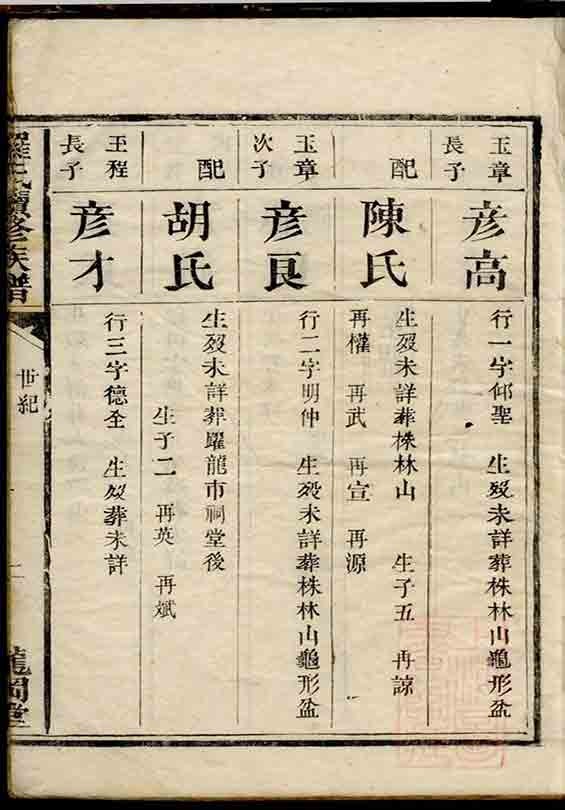 玉章長子
彦高
行一字仰聖　生歿未詳葬株林山龜形盆
配
陳氏
生歿未詳葬株林山　生子五　再諒
再權　再武　再宣　再源
玉章次子
彦良
行二字明仲　生歿未詳葬株林山龜形盆
配
胡氏
生歿未詳葬躍龍市祠堂後
生子二　再英　再斌
王程長子
彦才
行三字德全　生歿葬未詳
羅氏續修族譜
世紀
龍岡堂